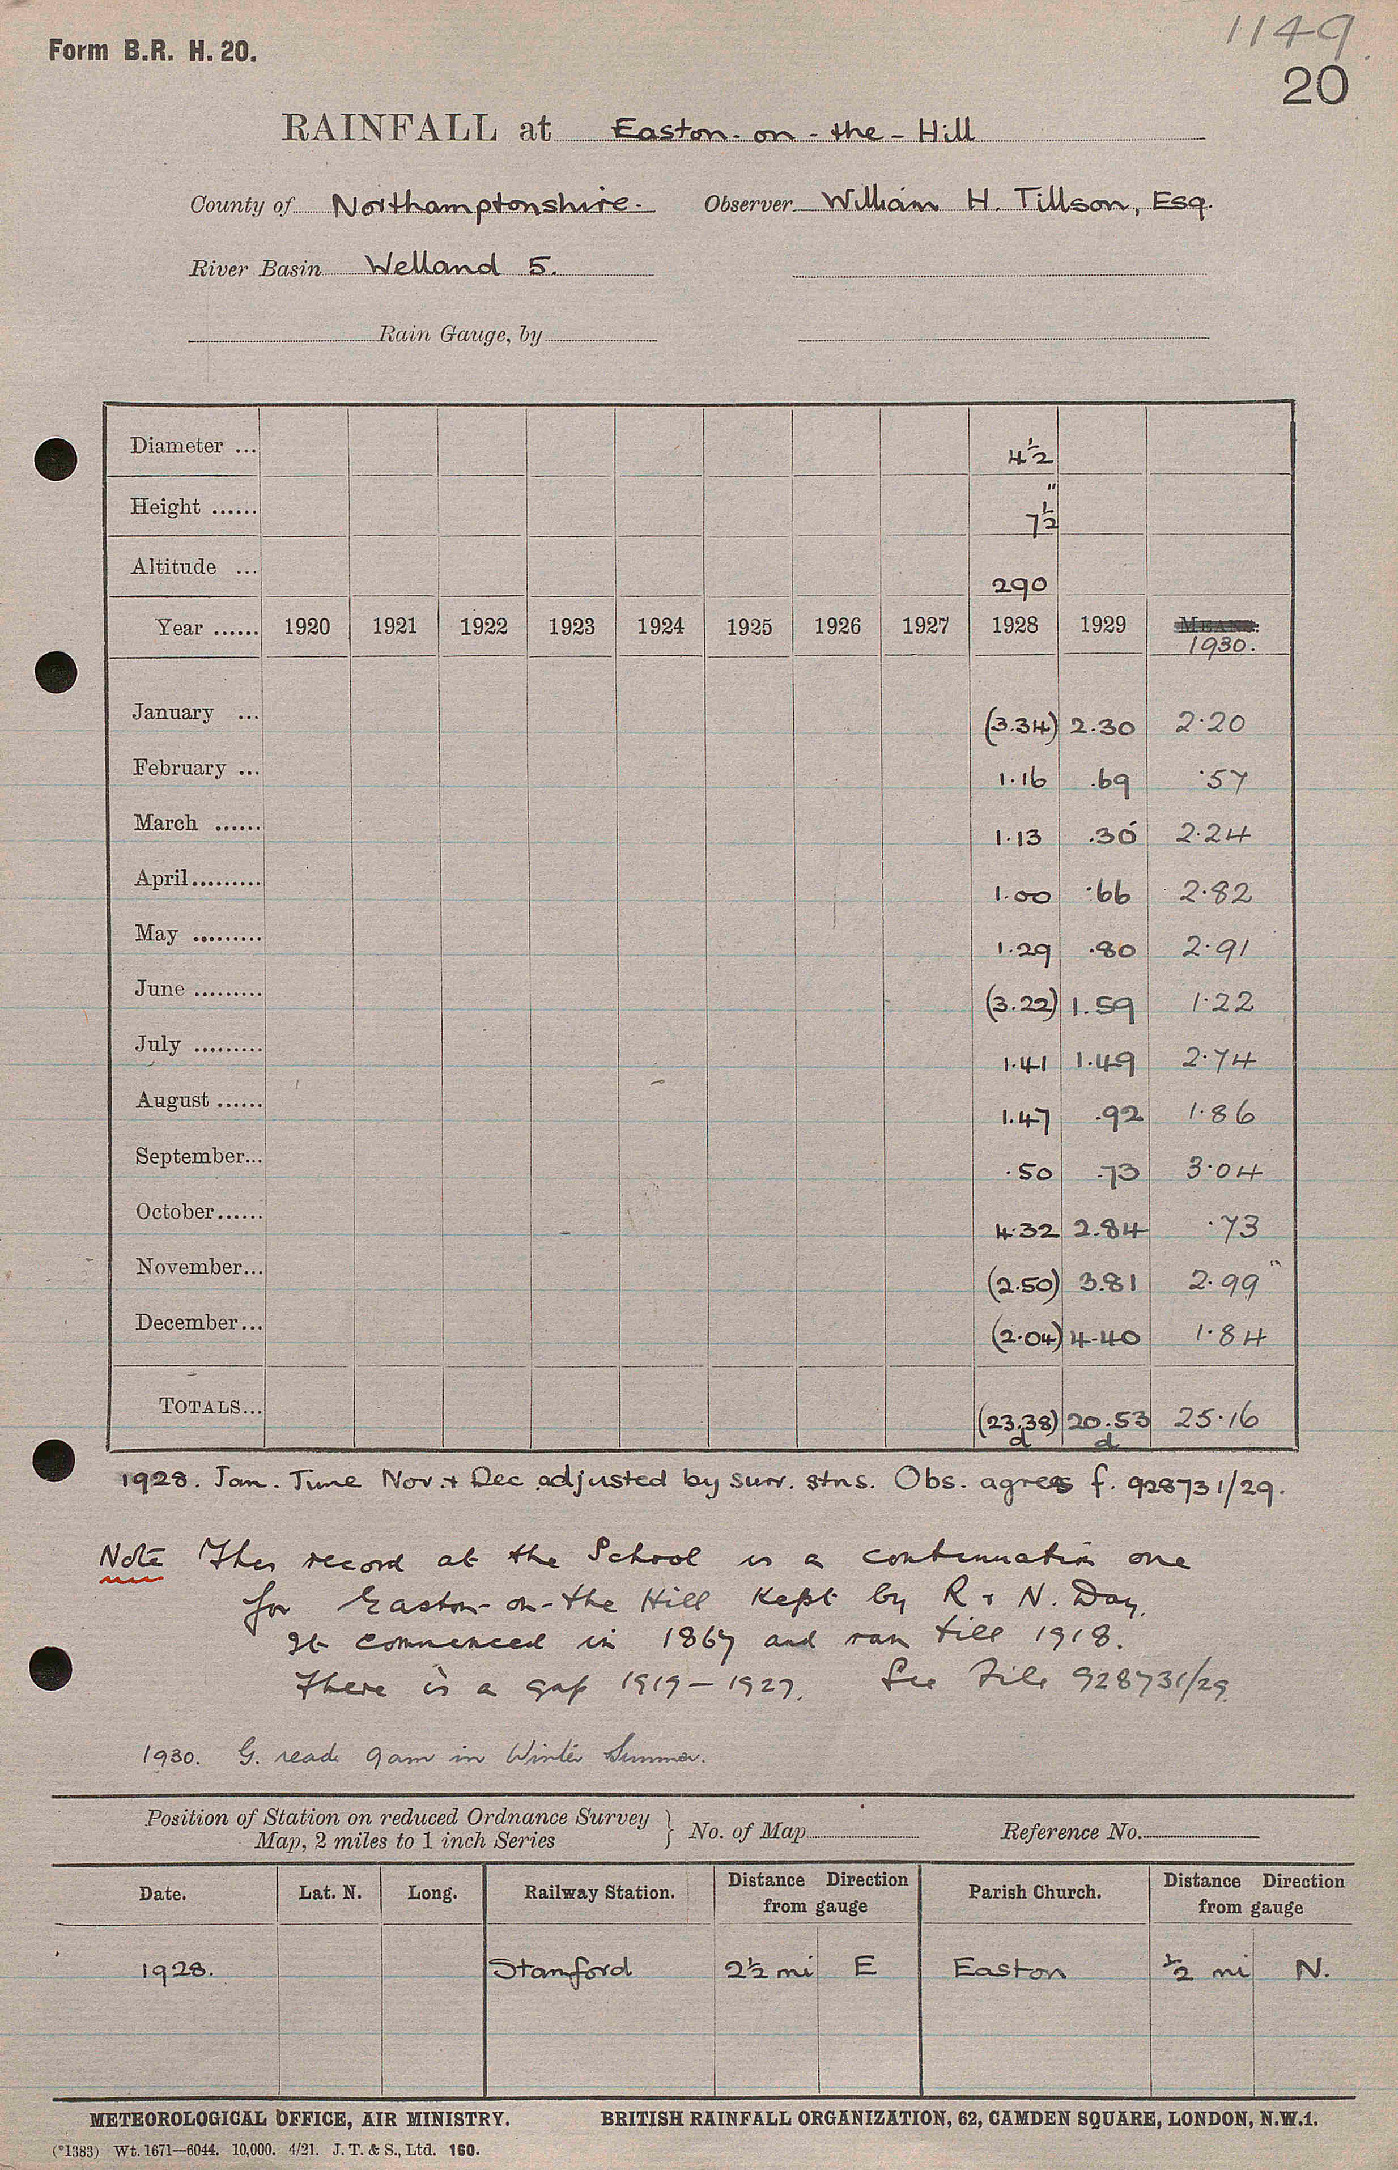 1149
Form B.R. H. 20.
20
RAINFALL at Easton-on-the-Hill
County of Northamptonshire. Observer William H. Tillson, Esq.
River Basin Welland 5.
Rain Gauge, by
Diameter ... 4½
Height ...... 7½"
Altitude ... 290
Year ...... 1920 1921 1922 1923 1924 1925 1926 1927 1928 1929 MEANS.
1930.
January ... (3.34) 2.30 2.20
February ... 1.16 .69 .57
March ...... 1.13 .30 2.24
April......... 1.00 .66 2.82
May ......... 1.29 .80 2.91
June ......... (3.22) 1.59 1.22
July ......... 1.41 1.49 2.74
August ...... 1.47 .92 1.86
September... .50 .73 3.04
October...... 4.32 2.84 .73
November... (2.50) 3.81 2.99
December... (2.04) 4.40 1.84
TOTALS... (23.38) 20.53 25.16
d d
1928. Jan. June Nov. + Dec adjusted by surr. stns. Obs. agrees f. 928731/29.
Note This record at the School is a continuation one
for Easton-on-the Hill kept by R & N. Day.
It commenced in 1867 and ran till 1918.
There is a gap 1919-1927. See File 928731/29
1930. G. read 9am in Winter Summer.
Position of Station on reduced Ordnance Survey
Map, 2 miles to 1 inch Series } No. of Map Reference No.
Date. Lat. N. Long. Railway Station. Distance Direction from gauge Parish Church. Distance Direction from gauge
1928. Stamford 2½ mi E Easton ½ mi N.
METEOROLOGICAL OFFICE, AIR MINISTRY. BRITISH RAINFALL ORGANIZATION, 62, CAMDEN SQUARE, LONDON, N.W.1.
(*1383) Wt. 1671—6044. 10,000. 4/21. J. T. & S., Ltd. 160.